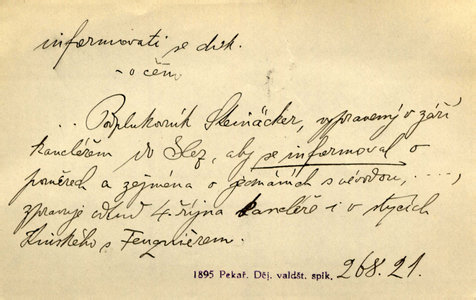 informovati se dok.
- o čem
... Podplukovník Steinäcker, vypravený v září
kancléřem do Slez, aby se informoval o
poměrech a zejména o jednáních s vévodou, ....,
zpravuje odtud 4. října kancléře i o stycích
Kinského s Feuquièrem.
1895 Pekař. Děj. valdšt. spik. 268.21.